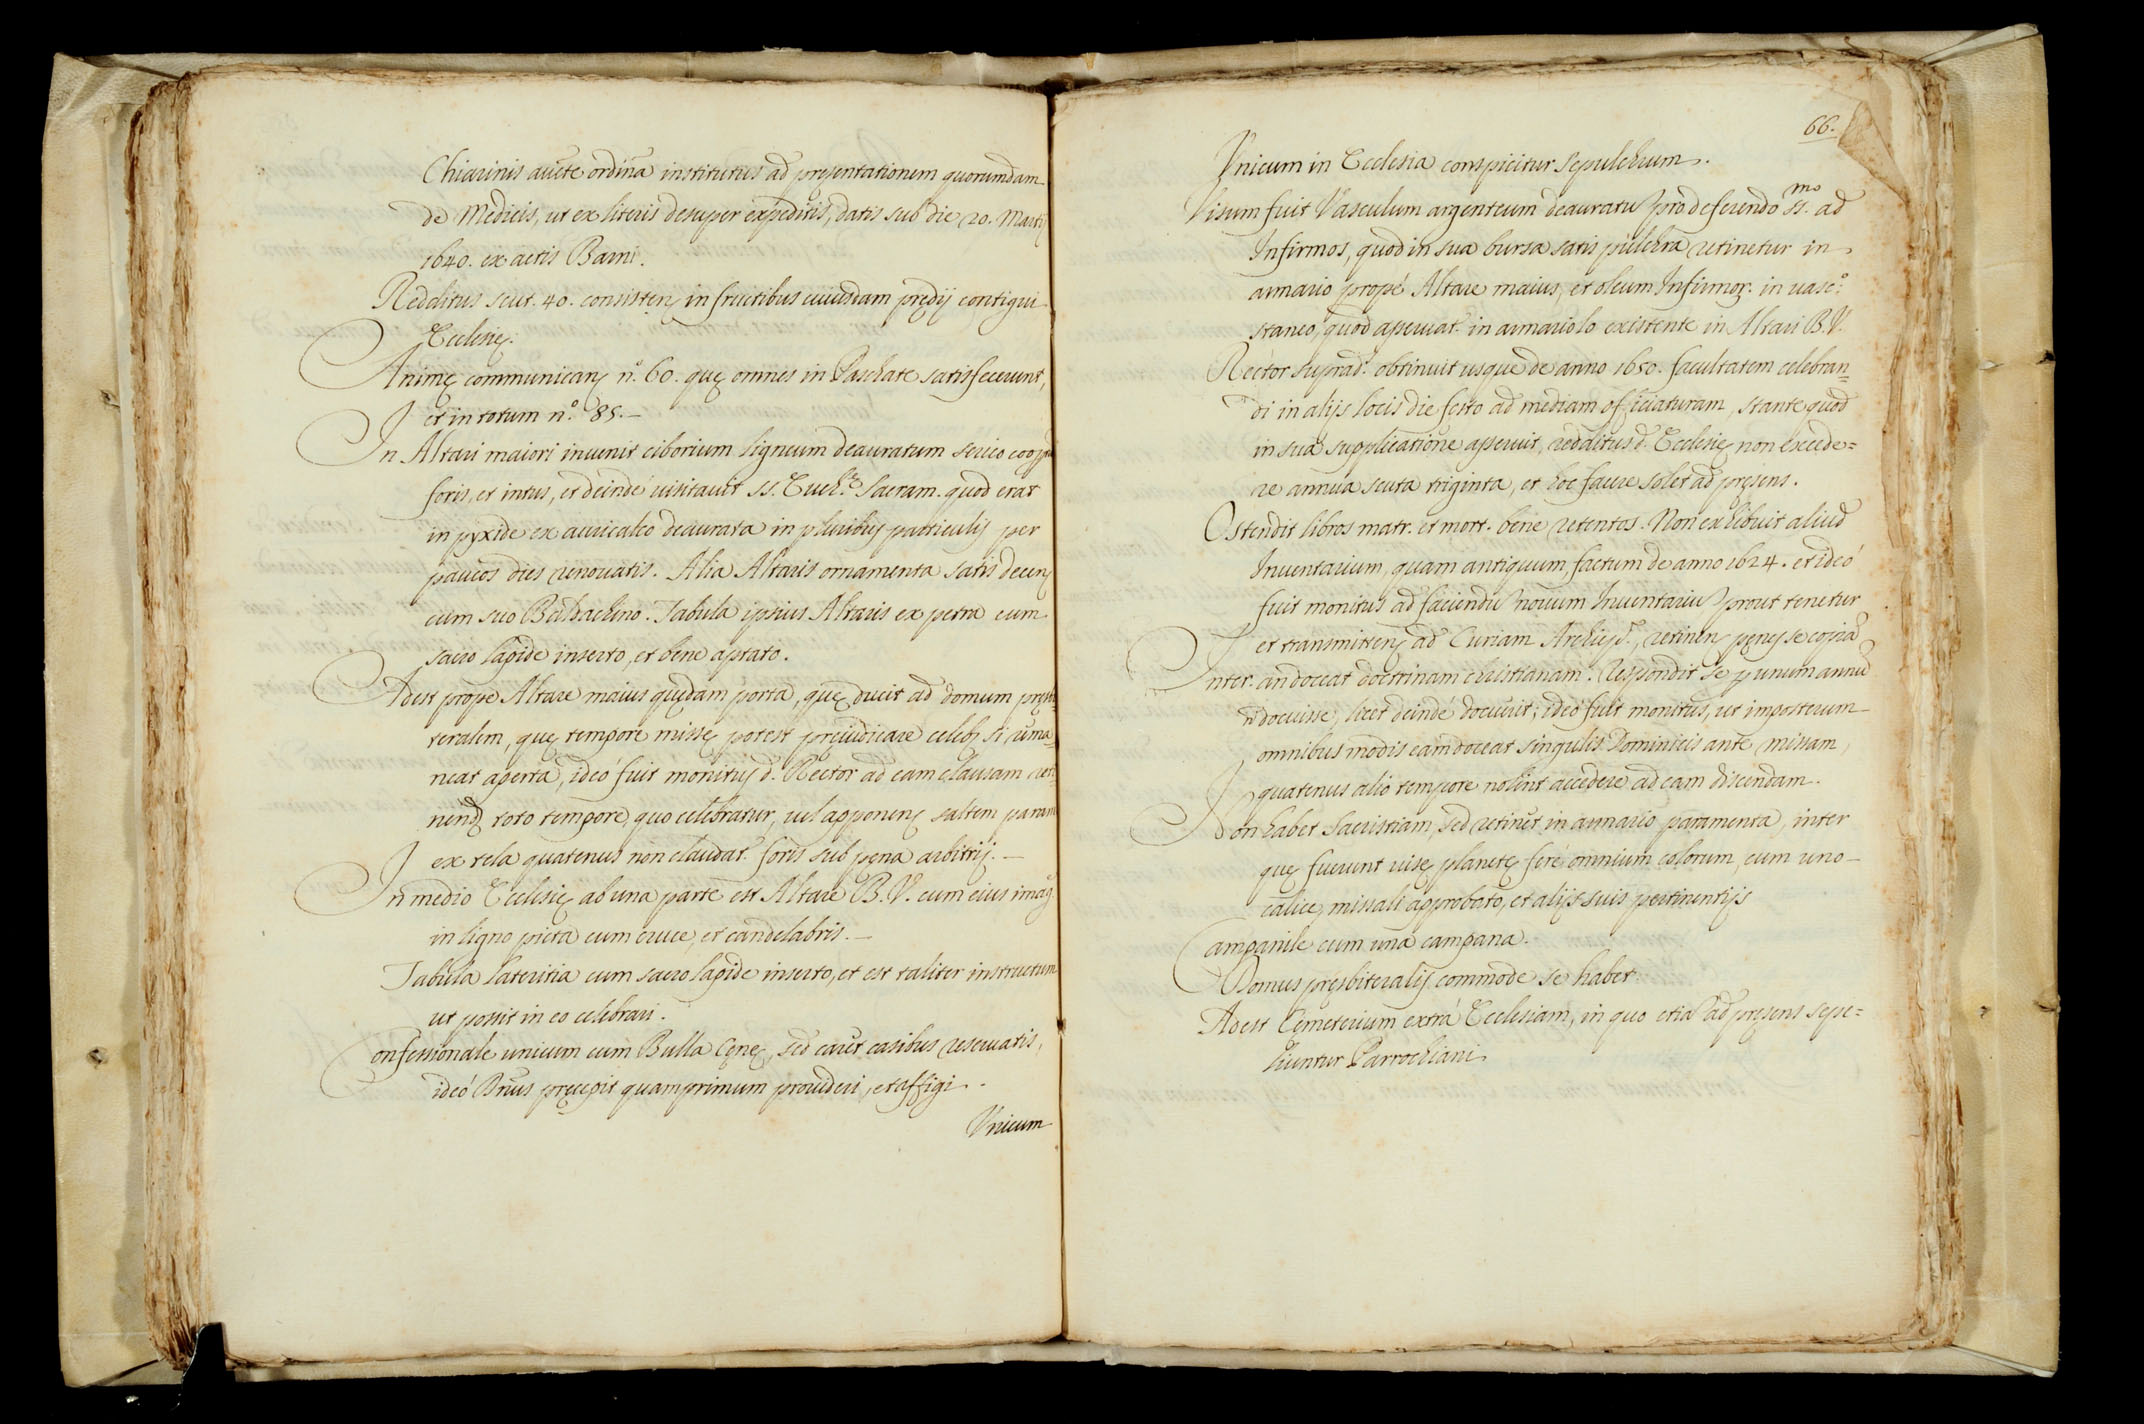 Chiarinis aucte ordina institutus ad presentationem quorumdam
de Medicis, ut ex literis desuper expeditis, datis sub die 20. Martij
1640. ex actis Barni.
Redditus scut. 40. consisten in fructibus cuiusdam prędij contigui
Ecclesię.
Animę communican n.º 60. quę omnes in Paschate satisfecerunt,
et in totum n.º 85.—
In Altari maiori invenit ciborium ligneum deauratum serico coop
foris, et intus, et deindè visitavit SS. Euch. Sacram. quod erat
in pyxide ex auricalco deaurata in pluribus particulis per
paucos dies renovatis. Alia Altaris ornamenta satis decen
cum suo Baldachino. Tabula ipsius Altaris ex petra cum
sacro lapide inserto, et bene aptato.
Adest prope Altare maius quędam porta, quę ducit ad domum pręsbi
teralem, quę tempore missę potest preiudicare celeb. si rema
neat aperta, ideò fuit monitus d. Rector ad eam clausam reti
nend toto tempore, quo celebratur, vel apponen saltem param
ex tela quatenus non claudat. foris sub pena arbitrij.—
In medio Ecclesię ab una parte est Altare B.V. cum eius imag.
in ligno picta cum cruce, et candelabris.—
Tabula lateritia cum sacro lapide inserto, et est taliter instructum
ut possit in eo celebrari.
Confessionale unicum cum Bulla Cęnę, sed caret casibus reservatis,
ideò pręcepit quamprimum provideri, et affigi.
Vnicum
66.
Vnicum in Ecclesia conspicitur sepulchrum.
Visum fuit Vasculum argenteum deauratu pro deferendo SS.mo ad
Infirmos, quod in sua bursa satis pulchra retinetur in
armario propè Altare maius, et oleum Infirmor. in vasc.º
staneo, quod asservat. in armariolo existente in Altari B.V.
Rector suprad. obtinuit usque de anno 1650. facultatem celebran=
di in alijs locis die festo ad mediam officiaturam, stante quod
in sua supplicatione asseruit, redditus d. Ecclesię non excede=
re annua scuta triginta, et hoc facere solet ad pręsens.
Ostendit libros matr. et mort. bene retentos. Non exhibuit aliud
Inventarium, quam antiquum, factum de anno 1624. et ideò
fuit monitus ad faciendu novum Inventariu prout tenetur
et transmitten ad Curiam, retinen penes se copia
Inter. an doceat doctrinam christianam. Respondit se p unum annu
docuisse, licet deindè docuerit; ideò fuit monitus, ut imposterum
omnibus modis eam doceat singulis Dominicis ante missam,
quatenus alio tempore nolint accedere ad eam discendam.
Non habet Sacristiam, sed retinet in armario paramenta, inter
quę fuerunt visę planetę ferè omnium colorum, cum uno
calice, missali approbato, et alijs suis pertinentijs
Campanile cum una campana.
Domus pręsbiteralis commode se habet
Adest Cęmeterium extrà Ecclesiam, in quo etia ad pręsens sepe=
liuntur Parrochiani.